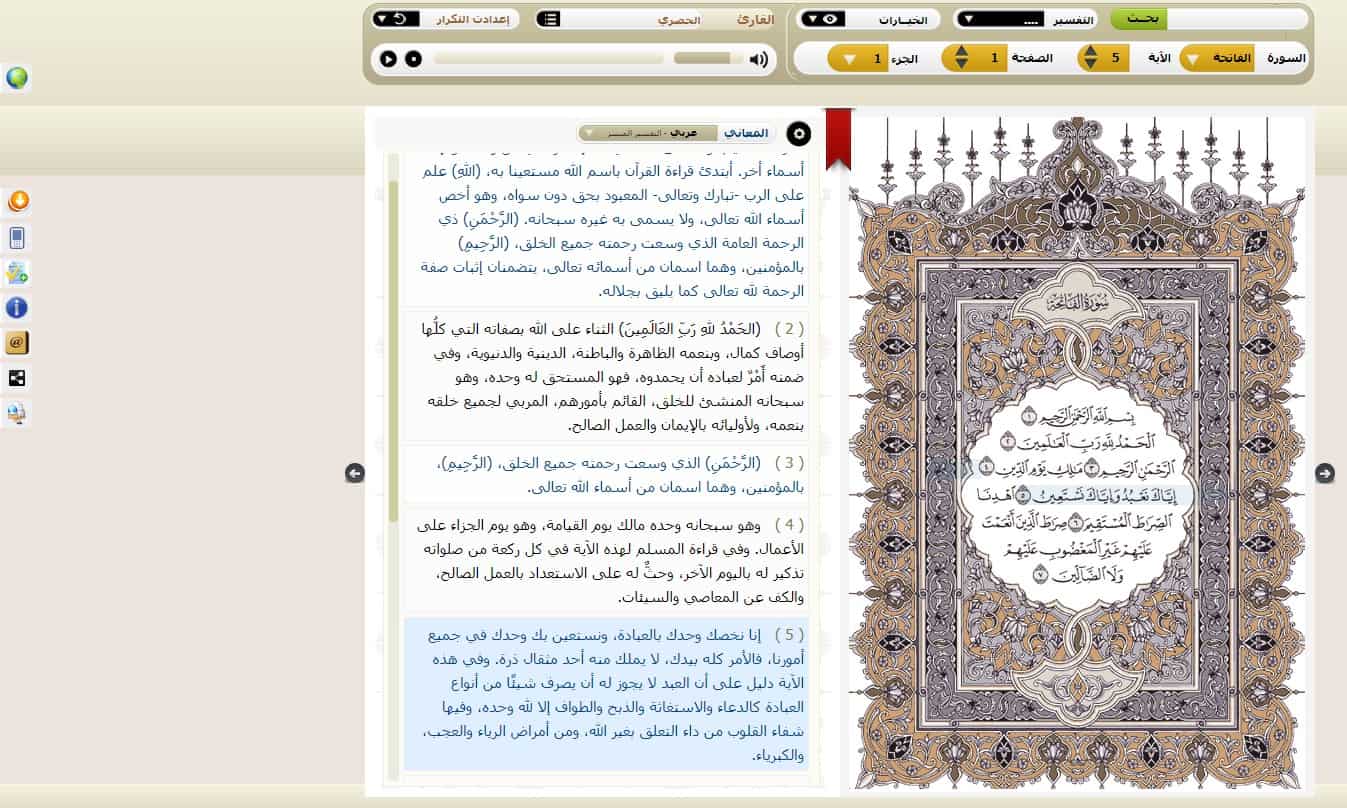 بحث
التفسير ....
الخيارات
القارئ الحصري
إعدادت التكرار
السورة الفاتحة
الآية 5
الصفحة 1
الجزء 1
المعاني عربي - التفسير الميسر
سُورَةُ الفَاتِحَةِ
بِسْمِ اللَّهِ الرَّحْمَٰنِ الرَّحِيمِ ١
الْحَمْدُ لِلَّهِ رَبِّ الْعَالَمِينَ ٢
الرَّحْمَٰنِ الرَّحِيمِ ٣ مَالِكِ يَوْمِ الدِّينِ ٤
إِيَّاكَ نَعْبُدُ وَإِيَّاكَ نَسْتَعِينُ ٥ اهْدِنَا
الصِّرَاطَ الْمُسْتَقِيمَ ٦ صِرَاطَ الَّذِينَ أَنْعَمْتَ
عَلَيْهِمْ غَيْرِ الْمَغْضُوبِ عَلَيْهِمْ
وَلَا الضَّالِّينَ ٧
أسماء أخر. أبتدئ قراءة القرآن باسم الله مستعينا به، (اللهِ) علم
على الرب -تبارك وتعالى- المعبود بحق دون سواه، وهو أخص
أسماء الله تعالى، ولا يسمى به غيره سبحانه. (الرَّحْمَنِ) ذي
الرحمة العامة الذي وسعت رحمته جميع الخلق، (الرَّحِيمِ)
بالمؤمنين، وهما اسمان من أسمائه تعالى، يتضمنان إثبات صفة
الرحمة لله تعالى كما يليق بجلاله.
( 2 ) (الحَمْدُ للهِ رَبِّ العَالَمِينَ) الثناء على الله بصفاته التي كلُّها
أوصاف كمال، وبنعمه الظاهرة والباطنة، الدينية والدنيوية، وفي
ضمنه أَمْرٌ لعباده أن يحمدوه، فهو المستحق له وحده، وهو
سبحانه المنشئ للخلق، القائم بأمورهم، المربي لجميع خلقه
بنعمه، ولأوليائه بالإيمان والعمل الصالح.
( 3 ) (الرَّحْمَنِ) الذي وسعت رحمته جميع الخلق، (الرَّحِيمِ)،
بالمؤمنين، وهما اسمان من أسماء الله تعالى.
( 4 ) وهو سبحانه وحده مالك يوم القيامة، وهو يوم الجزاء على
الأعمال. وفي قراءة المسلم لهذه الآية في كل ركعة من صلواته
تذكير له باليوم الآخر، وحثٌّ له على الاستعداد بالعمل الصالح،
والكف عن المعاصي والسيئات.
( 5 ) إنا نخصك وحدك بالعبادة، ونستعين بك وحدك في جميع
أمورنا، فالأمر كله بيدك، لا يملك منه أحد مثقال ذرة. وفي هذه
الآية دليل على أن العبد لا يجوز له أن يصرف شيئًا من أنواع
العبادة كالدعاء والاستغاثة والذبح والطواف إلا لله وحده، وفيها
شفاء القلوب من داء التعلق بغير الله، ومن أمراض الرياء والعجب،
والكبرياء.